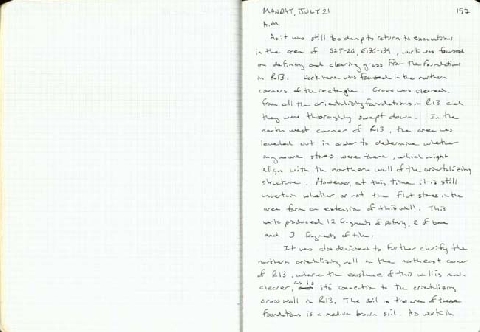 MONDAY, JULY 21 152
As it was still too damp to return to excavations
in the area of work was focused
on defining and clearing grass from the foundation
in R13. Work here was focused in the northern
corners of the rectangle. Grass was cleared
from all the orientalizing foundations in R13 and
they were thoroughly swept down. In the
north west corner of R13, the area was
leveled out in order to determine whether
any more stones were there, which might
align with the northern wall of the orientalizing
structure. However, at this time it is still
uncertain whether or not the flat stones in the
area form an extension of this wall. This
work produced 12 fragments of pottery, 2 of bone
and 3 fragments of tile.
It was also decided to further clarify the
northern orientalizing wall in the northeast corner
of R13, where the existence of this wall is much
clearer, as is its connection to the orientalizing
cross wall in R13. The soil in the area of these
foundations is a medium brown soil. As work in